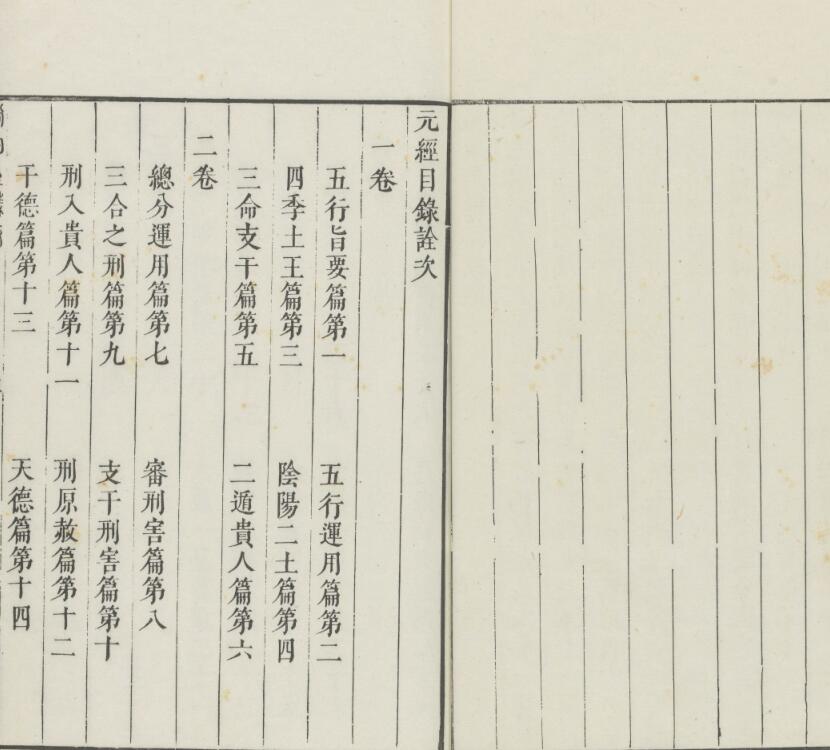 元經目錄詮次
一卷
五行旨要篇第一　五行運用篇第二
四季土王篇第三　陰陽二土篇第四
三命支干篇第五　二遁貴人篇第六
二卷
總分運用篇第七　審刑害篇第八
三合之刑篇第九　支干刑害篇第十
刑入貴人篇第十一　刑原赦篇第十二
干德篇第十三　天德篇第十四